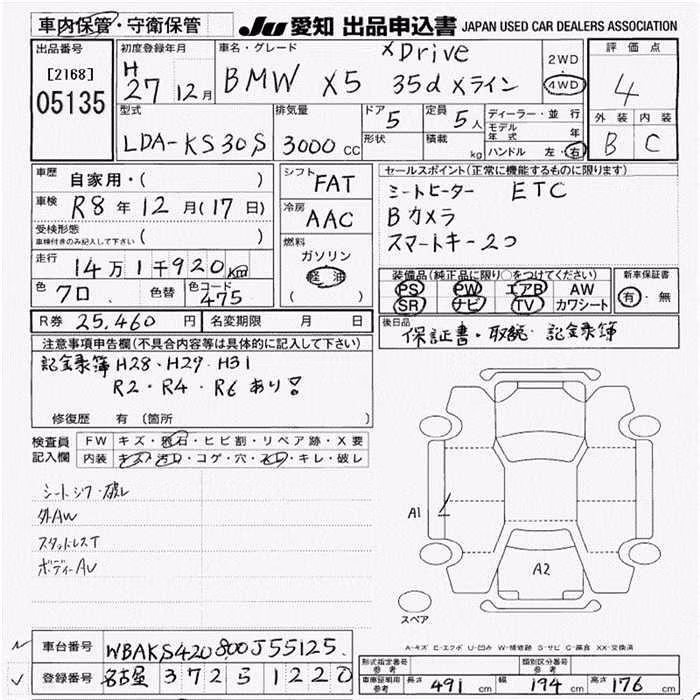 車内保管・守衛保管
JU 愛知 出品申込書 JAPAN USED CAR DEALERS ASSOCIATION
出品番号
[2168]
05135
初度登録年月
H
27 12月
車名・グレード
BMW X5 xDrive
35d Xライン
2WD
・
4WD
評価点
4
外装 内装
B C
型式
LDA-KS30S
排気量
3000 CC
ドア 5
形状
定員 5人
積載 kg
ディーラー・並行
モデル年式 年
ハンドル 左・右
車歴 自家用・( )
車検 R8年12月(17日)
受検形態
車検付きのみ記入して下さい ( )
走行 14万1千920km
色 クロ 色替 色コード 475
シフト FAT
冷房 AAC
燃料
ガソリン
軽油
( )
セールスポイント(正常に機能するものに限ります)
シートヒーター ETC
Bカメラ
スマートキー2コ
装備品(純正品に限り○をつけてください)
PS PW エアB AW
SR ナビ TV カワシート
新車保証書
有・無
R券 25,460円 名変期限 月 日
後日品
保証書・取説・記録簿
注意事項申告欄(不具合内容等は具体的に記入して下さい)
記録簿 H28・H29・H31
R2・R4・R6 あり!
修復歴 有 (箇所 )
検査員
記入欄
FW キズ・飛石・ヒビ割・リペア跡・X要
内装 キズ・汚れ・コゲ・穴・スレ・キレ・破レ
シートシワ・破レ
外AW
スタッドレスT
ボディーAU
A1
A2
スペア
A-キズ E-エクボ U-凹み W-補修跡 S-サビ C-腐食 XX-交換済
車台番号 WBAKS420800J55125
登録番号 名古屋 372 5 1220
形式指定番号
参考
類別区分番号
参考
車庫証明用
参考
長さ 491 cm 幅 194 cm 高さ 176 cm